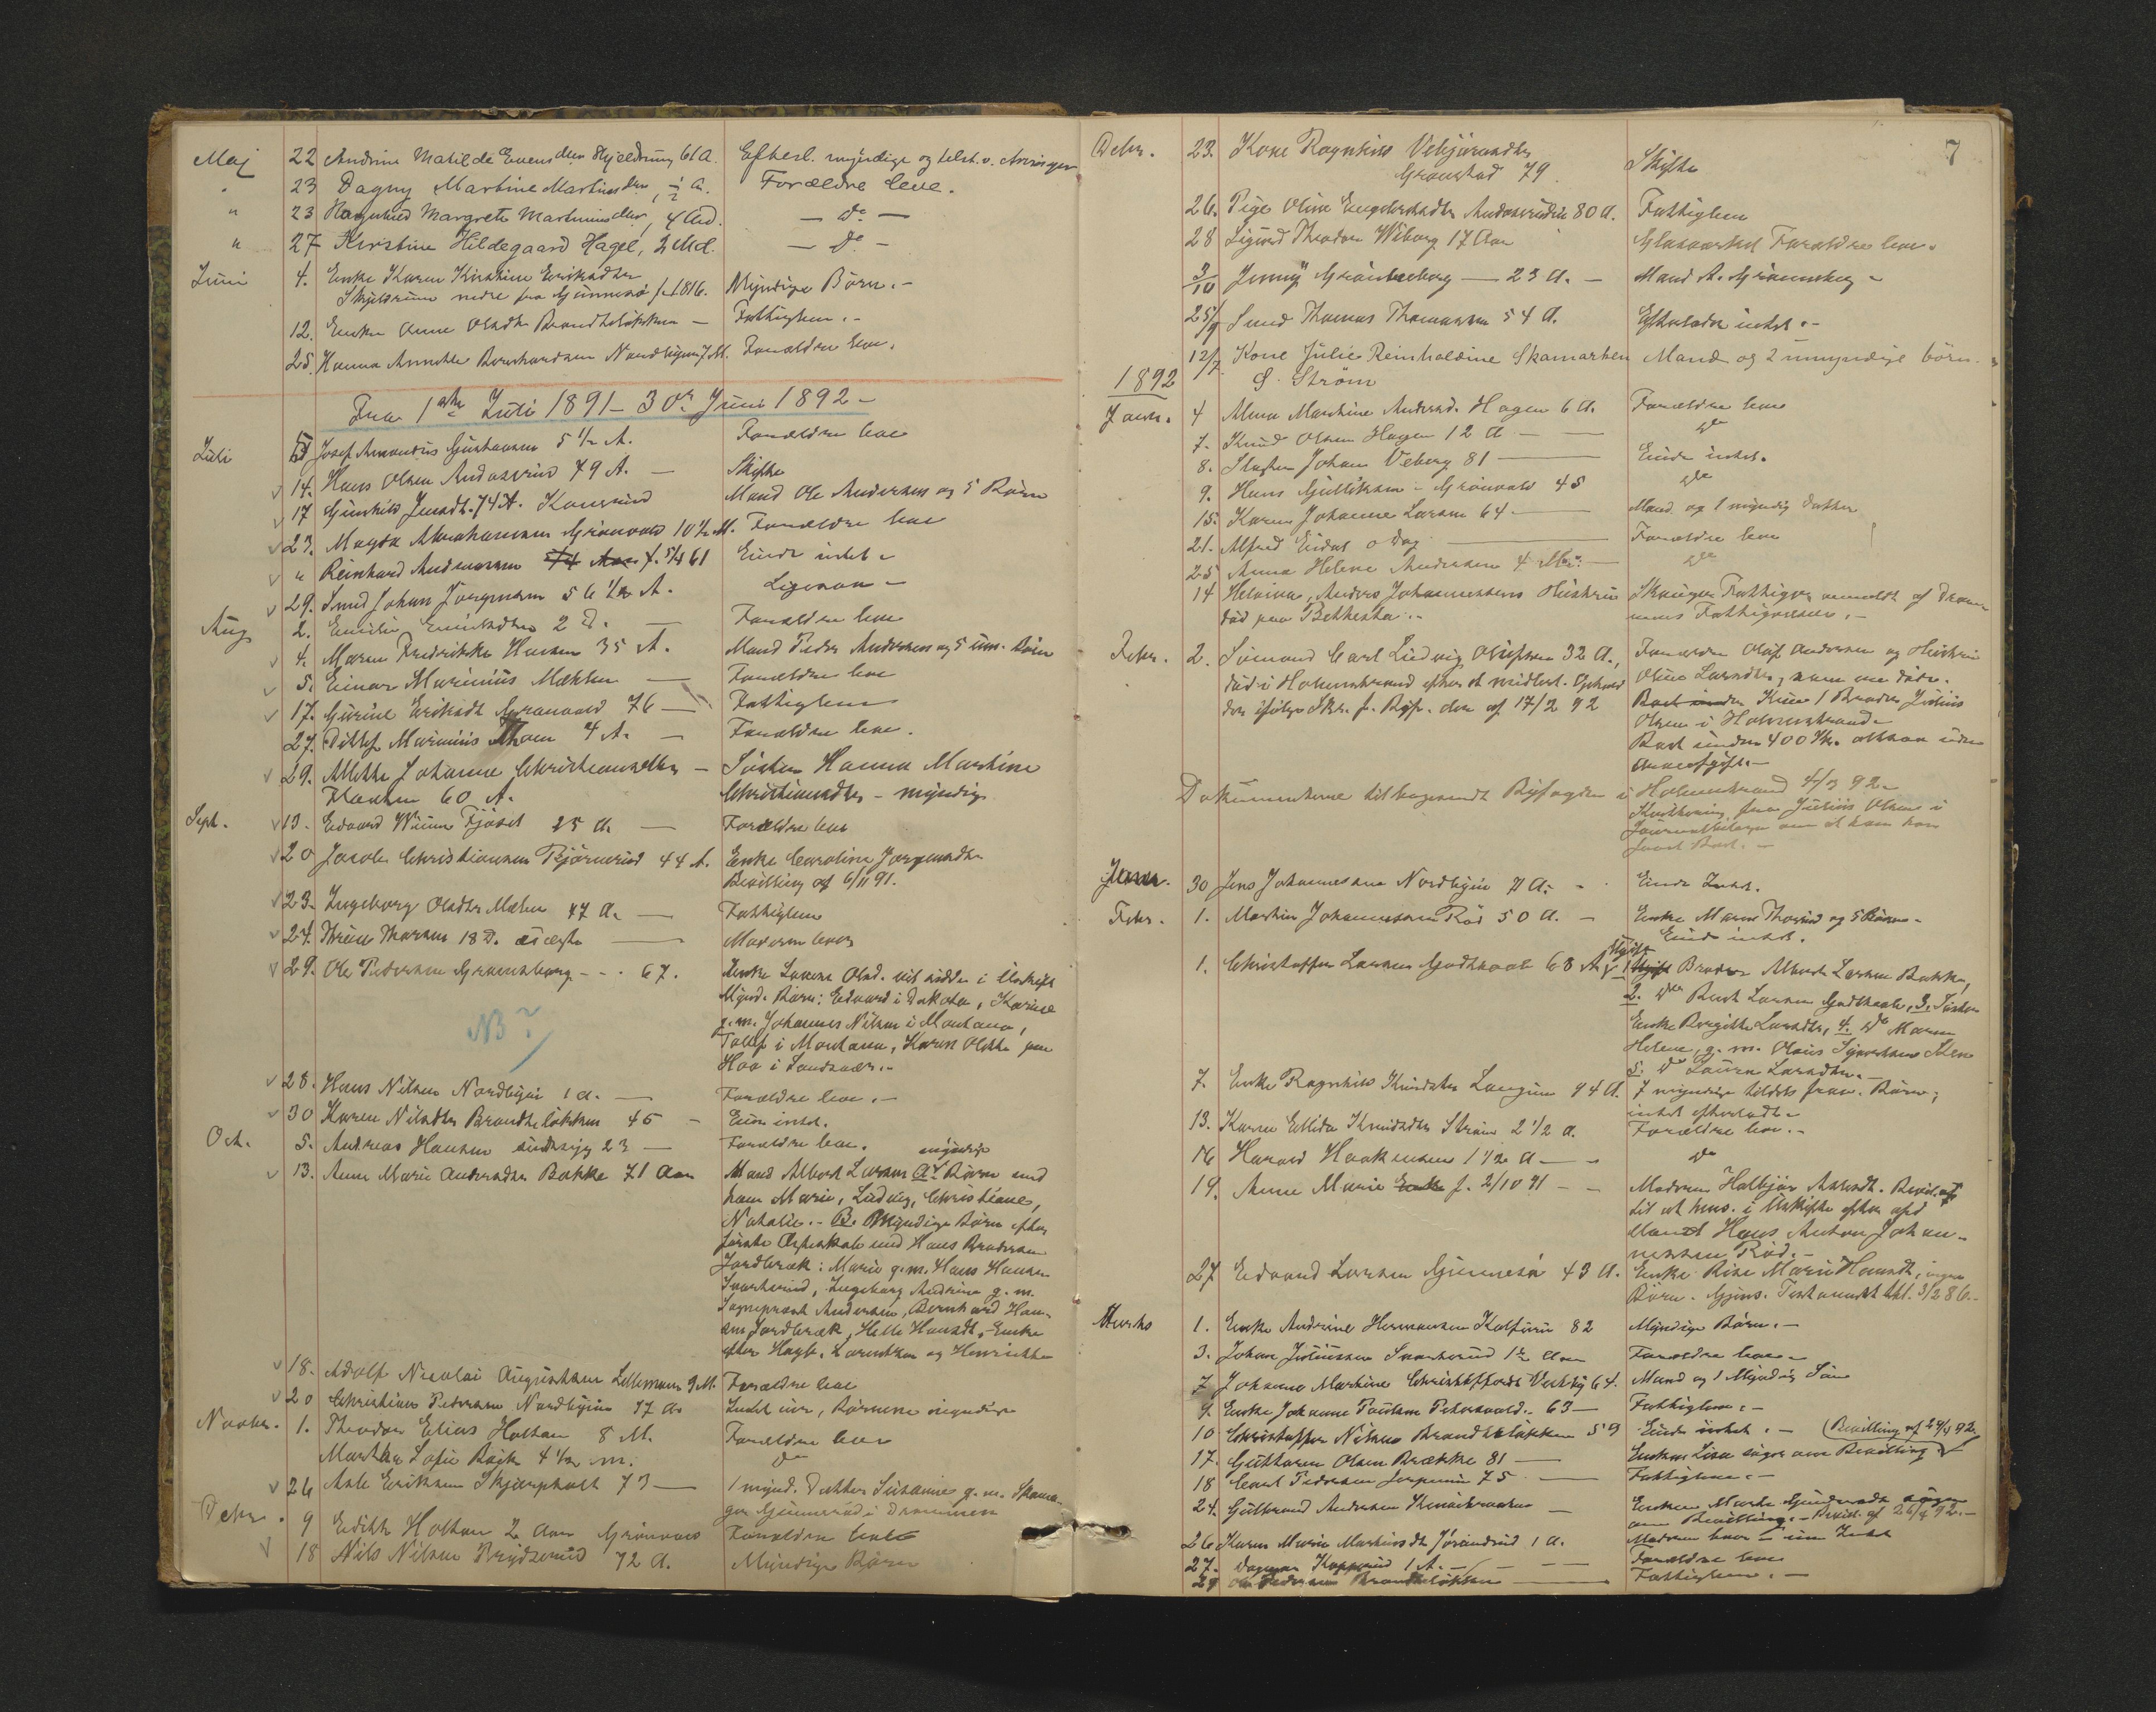 Maj 22 Andrine Matilde Evensdtr Skjeldrum 61 A. Efterl. myndige og telst. v. Arvinger
" 23 Dagny Martine Martinsdtr, ½ A. Forældre leve.
" 23 Ragnhild Margrete Martinusdtr, 4 Aa. — do —
" 27 Kirstine Hildegaard Hagel, 2 Md. — do —
Juni 4. Enke Karen Kirstine Eriksdtr
Skjeldrum nedre fra Gunnesø f. 1816. Myndige Börn. -
12. Enke Anne Olsdtr Brandtsløkken — Fattiglem. -
25. Hanna Annette Bernhardsen Nordbyeie 7 M. Forældre leve.
Fra 1ste Juli 1891 - 30te Juni 1892 -
Juli Josef Amandus Gustavsen 5 ½ A. Forældre leve
14. Hans Olsen Andaasrud 79 A. — Skifte
17 Gunhild Jensdt. 74 A. Mand Ole Andersen og 5 Börn
23. Magda Abrahamsen Grönvold 10 ½ M. Forældre leve
" Reinhard Andersen f. 5/4 61 Eiede intet -
29. Smed Johan Jörgensen 56 ½ A. Ligesaa -
Aug 2. Emilie 2 D. — Forældre leve
4. Maren Fredrikke Hansen 35 A. Mand Peder Andersen og 5 um. Börn
5. Einar Marinius Melhen — Forældre leve
17. Gurine Eriksdt Grönvold 76 — Fattiglem
27. Ditlef Marinius Moen 4 A. — Forældre leve.
29. Alette Johanne Christiansdtr — Söster Hanna Martine
60 A. Christiansdtr - myndig
Sept. 13. Edvard Wium Fjøset 25 A. — Forældre leve
20 Jacob Christiansen Bjørnerud 44 A. Enke Caroline Jørgensdtr
Bevilling af 6/11 91.
23. Ingeborg Olsdtr Mælen 47 A. — Fattiglem
24. Thrine Thorsen 18 D. uægte — Moderen lever
29. Ole Pedersen Grønsberg - - - 67. Enke Lovise Olsd. vil sidde i Uskift
Mynd. Börn: Edvard i Dakota, Karine
g. m. Johannes Nilsen i Montana,
i Montana, Karen Oletta paa
Hoa i Sandsvær. -
NB?
28. Hans Nilsen Nordbyeie 1 A. — Forældre leve. -
30 Karen Nilsdtr Brandtsløkken 45 — Eier intet.
Oct. 5. Andreas Hansen 23 — Forældre leve. myndige
13. Anne Marie Andersdtr Bakke 71 Aar Mand Albert Larsen A. Börn med
ham Marie, Ludvig, Christiane,
Natalie. - B. Myndige Börn efter
förste Ægteskab med Hans Bredesen
Jordbræk: Marie g. m. Hans Hansen
Svarterud, Ingeborg Andrine g. m.
Andersen, Bernhard Han-
sen Jordbræk, Helle Hansdt, Enke
efter Hagb. Lorentzen og Henriette
18. Adolf Nicolai Augustsen Lillemoen 9 M. Forældre leve
20 Christian Pedersen Nordbyeie 77 A. Intet eier, Börnene myndige
Novbr. 1. Theodor Elias Holtan 8 M. Forældre leve
Marthe Sofie Bøje 4 ½ m. do
26 Asle Eriksen Skjærpholt 73 — 1 mynd. Datter Susanne g. m.
Gunnerud i Drammen
Dcbr. 9 Edith Holtan 2 Aar Grönvold Forældre leve
18 Nils Nilsen Prydserud 72 A. Myndige Börn
7
Dcbr. 23. Kone Ragnhild Vebjørnsdtr
Grønstad 79. Skifte
26. Pige Oline Engebretsdtr Andaasrudeie 80 A. Fattiglem
28 Sigurd Theodor Wiborg 17 Aar Glasværket Forældre leve.
3/10 Jenny Grönneberg — 23 A. — Mand A. Grönneberg -
25/9 Smed Thomas Thomassen 54 A. Efterlader intet. -
12/7 Kone Julie Reinholdine Skamarken Mand og 2 umyndige börn.
S. Ström
1892
Janr. 4 Alma Martine Andersd. Hagen 6 A. Forældre leve
7. Knud Olsen Hagen 12 A — do
8. Slagter Johan Veberg 81 — Eiede intet.
9. Hans Gulliksen - Grönvold 45 do
15. Karen Johanne Larsen 64 — Mand og 1 myndig datter
21. Alfred Eidal 0 Dag — Forældre leve
25 Anna Helene Andersen 4 — do
14 Helvine, Anders Johannessens Hustru Skauger Fattigv. anmeldt af Dram-
död paa Bethesda. - mens Fattigvæsen. -
Febr. 2. Sömand Carl Ludvig Olufsen 32 A., Forældre Oluf Andersen og Hustru
död i Holmestrand efter et midlert. Ophold Oline Larsdtr, som ere döde.
der ifölge Skr. f. Byf. der af 17/2 92 Kun 1 Broder Julius
Olsen i Holmestrand
Boet under 400 Kr. altsaa uden
Arveafgift. -
Dokumenterne tilbagesendt Byfogden i Holmestrand 4/3 92 -
Kvittering fra Julius Olsen i
Journalbilagen om at ham har
faaet Boet. -
Janr. 30 Jens Johannesen Nordbyeie 71 A. - Eiede Intet.
Febr. 1. Martin Johannesen Rød 50 A. — Enke Maren Thorine og 5 Börn -
Eiede intet.
1. Christoffer Larsen Godthaab 68 A. Ugift 1. Broder Albert Larsen Bakke,
2. do Berth Larsen Godthaab, 3. Söster
Enke Birgitte Larsdtr, 4. do Maren
Helene, g. m. Olaus Sten
5. do Laura Larsdtr. -
7. Enke Ragnhild Knudsdtr Langum 94 A. 7 myndige Börn;
intet efterladt -
13. Karen Ellida Knudsdtr Ström 2 ½ A. Forældre leve. -
16 Harald Haakensen 1 ½ A — - do
19. Anne Marie f. 2/10 91 - - Moderen Halbjör Aslesdt.
til at hens. i Uskifte efter afd
Mand Hans Anton Johan-
nessen Rød. -
27 Edvard Larsen Gunnesø 43 A. Enke Rise Marie Hansdt, ingen
Börn. Gjens. Testament 3/2 86. -
Marts 1. Enke Andrine Hermansen Kolfurru 82 Myndige Börn. -
3. Johan Juliussen Svarterud 1 ½ Aar Forældre leve -
7 Johanne Martine Christoffersdt 64. Mand og 1 Myndig Sön
9. Enke Johanne Paulsen Petersvold. 63 — Fattiglem. -
10 Christoffer Nilsen Brandtsløkken 59 Eiede intet. - (Bevilling af 24/3 92.
17. Guttorm Olsen Brække 81 — Enken Lisa söger om Bevilling
18 Carl Pedersen 75 — Fattiglem. -
24. Gulbrand Andersen — Enken Marthe Gundersdt söger
om Bevilling. - Bevil. af 26/4 92. -
26 Karen Marie Martinsdt Jörandrud 1 A. Moderen lever
27. Dagmar Kopperud 1 A. — Forældre leve
29 Ole Pedersen Brandtsløkken — Fattiglem. -